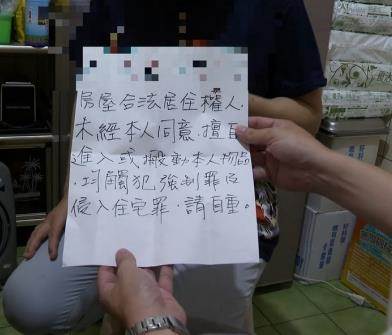 房屋合法居住權人.
未經本人同意.擅自
進入或搬動本人物品
.均觸犯強制罪及
侵入住宅罪.請自重。